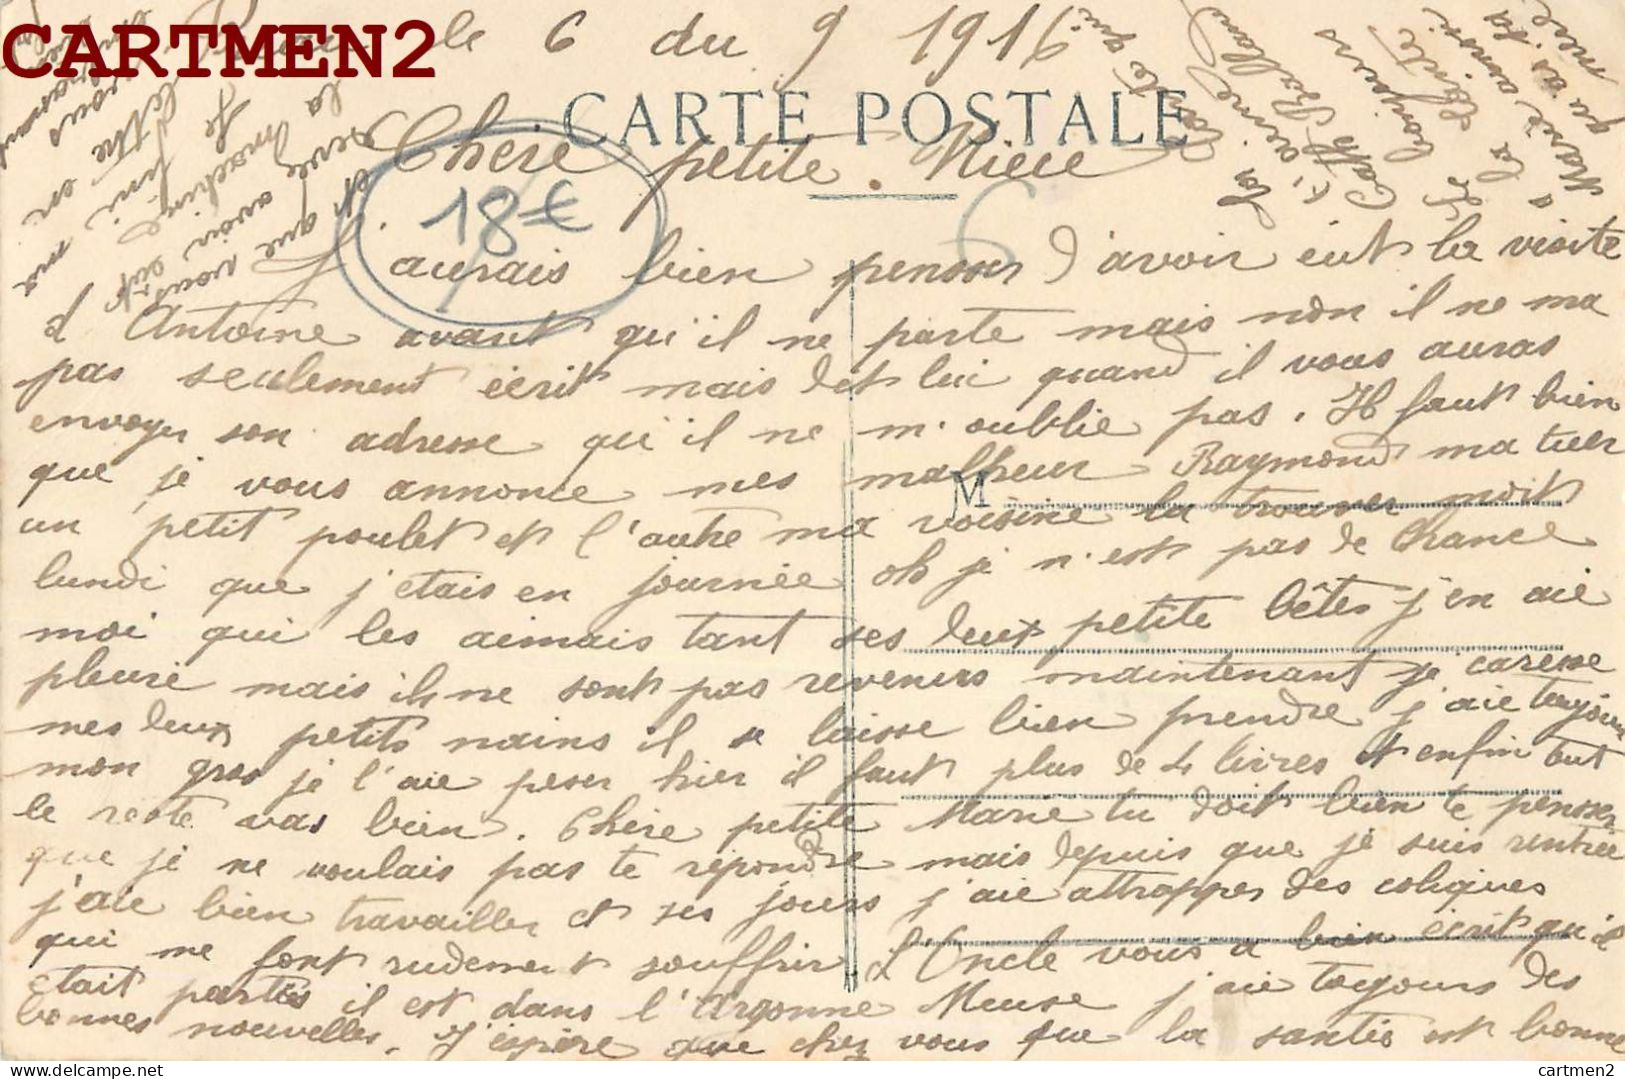 CARTMEN2
le 6 du 9 1916
CARTE POSTALE
Chère petite Niece
18€
J aurais bien pensser d'avoir eut la visite
d'Antoine avant qu'il ne parte mais non il ne ma
pas seulement écrit mais dit lui quand il vous auras
envoyer son adresse qu'il ne m'oublie pas. Il faut bien
que je vous annonce mes malheur Raymond ma tuer
un petit poulet et l'autre ma voisine la trouver moit
M
lundi que j'etais en journée oh je n'est pas de chance
moi qui les aimais tant ses deux petite bêtes j'en aie
pleuré mais ils ne sont pas revenus maintenant je caresse
mes deux petits nains il se laisse bien prendre j'aie toujours
mon gros je l'aie peser hier il faut plus de 4 livres et enfin tout
le reste vas bien. Chère petite Marie tu doit bien te pensser
que je ne voulais pas te répondre mais depuis que je suis rentrée
j'aie bien travailler et ses jours j'aie attrapper des coliques
qui me font rudement souffrir L'Oncle vous a bien écrit qu'il
était partis il est dans l'Argonne Meuse j'aie toujours des
bonnes nouvelles. J'espère que chez vous que la santée est bonne
et que vous
devez avoir eût
la machine
Je
fini
lettre en
vous
Ta Tante qui
t'aime
Cath Rolland
Je
toujours
la Ste
a Marie ainsi
qu'as ta
mère
cartmen2